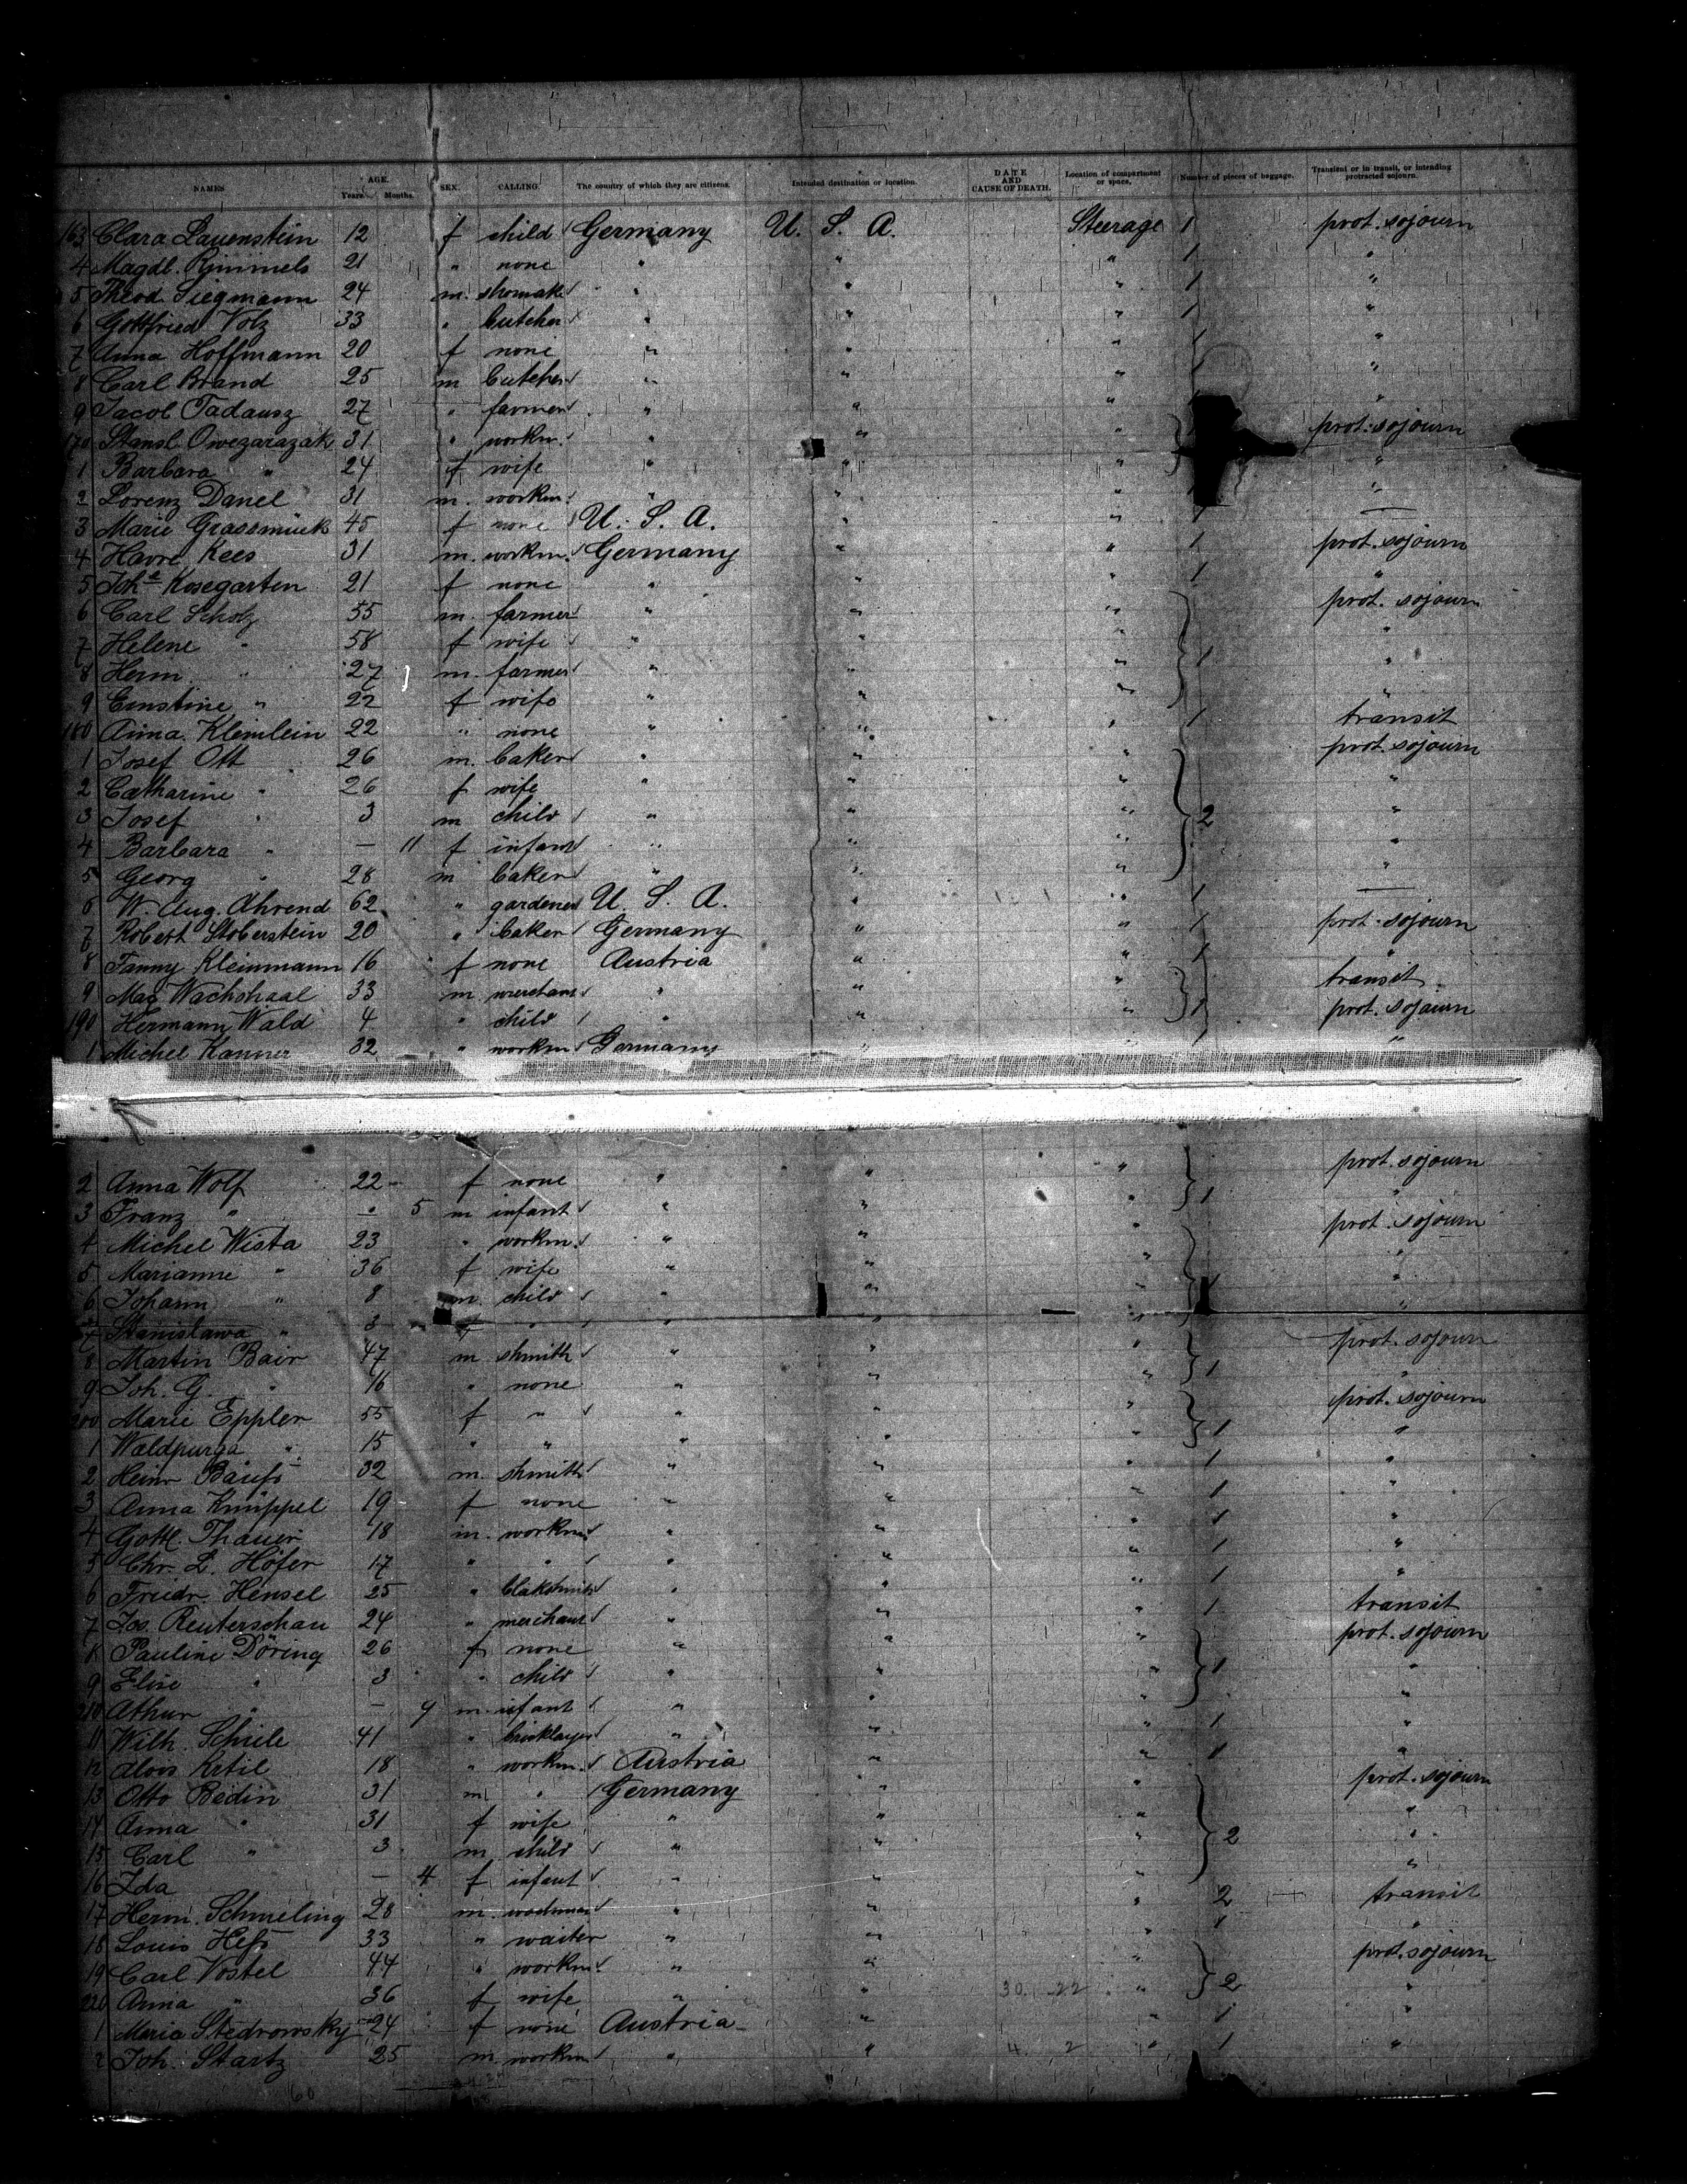 NAMES AGE. Years. Months. SEX. CALLING. The country of which they are citizens. Intended destination or location. DATE AND CAUSE OF DEATH. Location of compartment or space. Number of pieces of baggage. Transient or in transit, or intending protracted sojourn.
163 Clara Lauenstein 12 f child Germany U. S. A. Steerage 1 prot. sojourn
4 Magdl. Rimmels 21 " none " " " 1 "
5 Theod. Siegmann 24 m. shomak " " " 1 "
6 Gottfried Volz 33 " butcher " " " 1 "
7 Anna Hoffmann 20 f none " " " 1 "
8 Carl Brand 25 m butcher " " " 1 "
9 Jacob Tadausz 27 " farmer " " " "
170 Stansl. Owezarazak 31 " workm. " " " prot. sojourn
1 Barbara " 24 f wife " " " "
2 Lorenz Danel 31 m. workm. " " " 1 "
3 Marie Grassmück 45 f none U. S. A. " " 1 —
4 Havre Kees 31 m. workm. Germany " " 1 prot. sojourn
5 Joh^a Kosegarten 21 f none " " " 1 "
6 Carl Scholz 55 m. farmer " " " prot. sojourn
7 Helene " 58 f wife " " " "
8 Herm. " 27 m. farmer " " " 1 "
9 Ernstine " 22 f wife " " " "
180 Anna Kleinlein 22 " none " " " 1 transit
1 Josef Ott 26 m. baker " " " prot. sojourn
2 Catharine " 26 f wife " " " "
3 Josef " 3 m child " " " 2 "
4 Barbara " — 11 f infant " " " "
5 Georg " 28 m baker " " " "
6 W. Aug. Ahrend 62 " gardener U. S. A. " " 1 —
7 Robert Stoberstein 20 " baker Germany " " 1 prot. sojourn
8 Fanny Kleinmann 16 f none Austria " " 1 "
9 Max Wachshaal 33 m merchant " " " transit
190 Hermann Wald 4 " child " " " 1 prot. sojourn
1 Michel Kanner 32 " workm Germany " " 1 "
2 Anna Wolf 22 f none " " " prot. sojourn
3 Franz " " 5 m infant " " " 1 "
4 Michel Wista 23 " workm. " " " prot. sojourn
5 Marianne " 36 f wife " " " "
6 Johann " 8 m. child " " " 1 "
7 Stanislawa " 3 f " " " " "
8 Martin Bair 47 m shmith " " " prot. sojourn
9 Joh. G. " 16 " none " " " 1 "
200 Marie Eppler 55 f " " " " prot. sojourn
1 Waldpurga " 15 " " " " " 1 "
2 Heinr 32 m. shmith " " " 1 "
3 Anna Knüppel 19 f none " " " 1 "
4 Gottl. Thauer 18 m. workm " " " 1 "
5 Chr. L. Höfer 17 " " " " " 1 "
6 Friedr. Hensel 25 " blakshmith " " " 1 "
7 Jos. Reuterschau 24 " merchant " " " 1 transit
8 Pauline Döring 26 f. none " " " prot. sojourn
9 Elise " 3 " child " " " 1 "
210 Athur " — 9 m. infant " " " "
11 Wilh. Schiele 41 " bricklayer " " " 1 "
12 Alois Krtil 18 " workm. Austria " " 1 "
13 Otto Bedin 31 m " Germany " " prot. sojourn
14 Anna " 31 f wife " " " "
15 Carl " 3 m child " " " 2 "
16 Ida — 4 f infant " " " "
17 Herm. Schmeling 28 m. " " " 2 transit
18 Louis Heß 33 " waiter " " " 1 "
19 Carl Vostel 44 " workm. " " " prot. sojourn
220 Anna " 36 f wife " " 30 22 " 2 "
1 Maria Stedrowsky 24 f none Austria " " 1 "
2 Joh. Startz 25 m workm " " 4 2 " 1 "
60